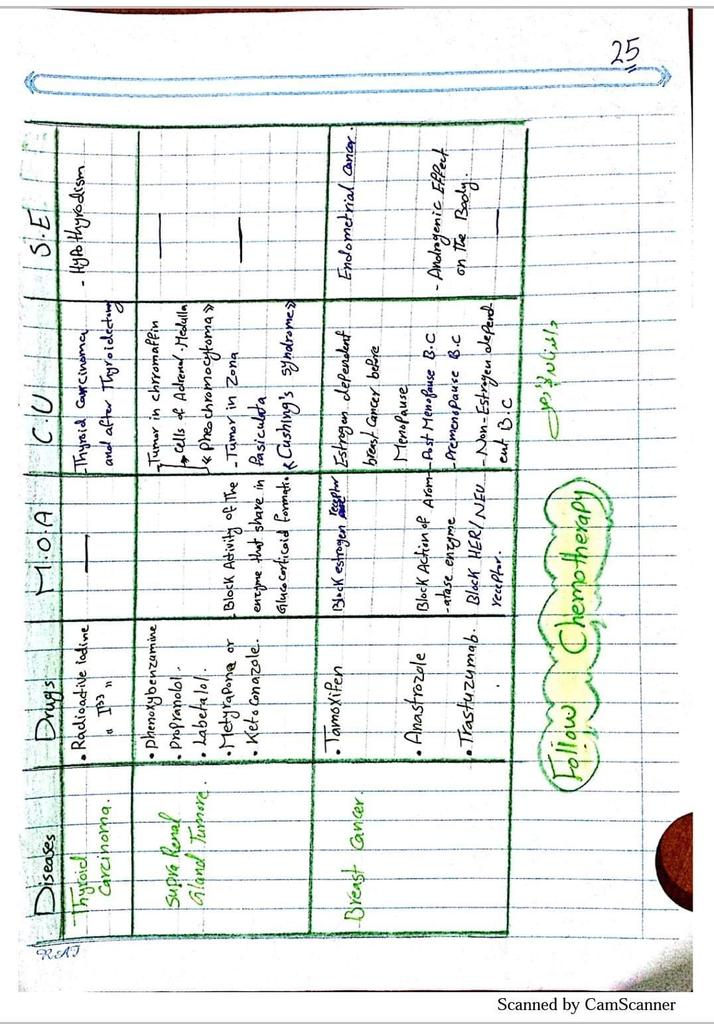 25
Diseases
Drugs
M.O.A
C.U
S.E
Thyroid
Carcinoma.
• Radioactive Iodine
- Thyroid Carcinoma
and after Thyroidectomy
- Hypothyrodism
Supra Renal
Gland Tumore.
• Phenoxybenzamine
• Propranolol.
• Labetalol.
- Tumor in chromaffin
Cells of Adrenal Medulla
« Pheochromocytoma »
• Metyrapone or
• Ketoconazole.
- Block Activity of The
enzyme that share in
Glucocorticoid formatio
- Tumor in Zona
Fasiculata
« Cushing's syndrome »
Breast Cancer.
• Tamoxifen
Block estrogen receptor
Estrogen dependent
breast Cancer before
Menopause
Endometrial Cancer.
• Anastrozole
Block Action of Arom
-atase enzyme
- Post Menopause B.C
- Premenopause B.C
- Androgenic Effect
on The Body.
• Trastuzymab.
Block HER/NEU
receptor.
- Non-Estrogen depend-
ent B.C
Follow Chemotherapy
Scanned by CamScanner